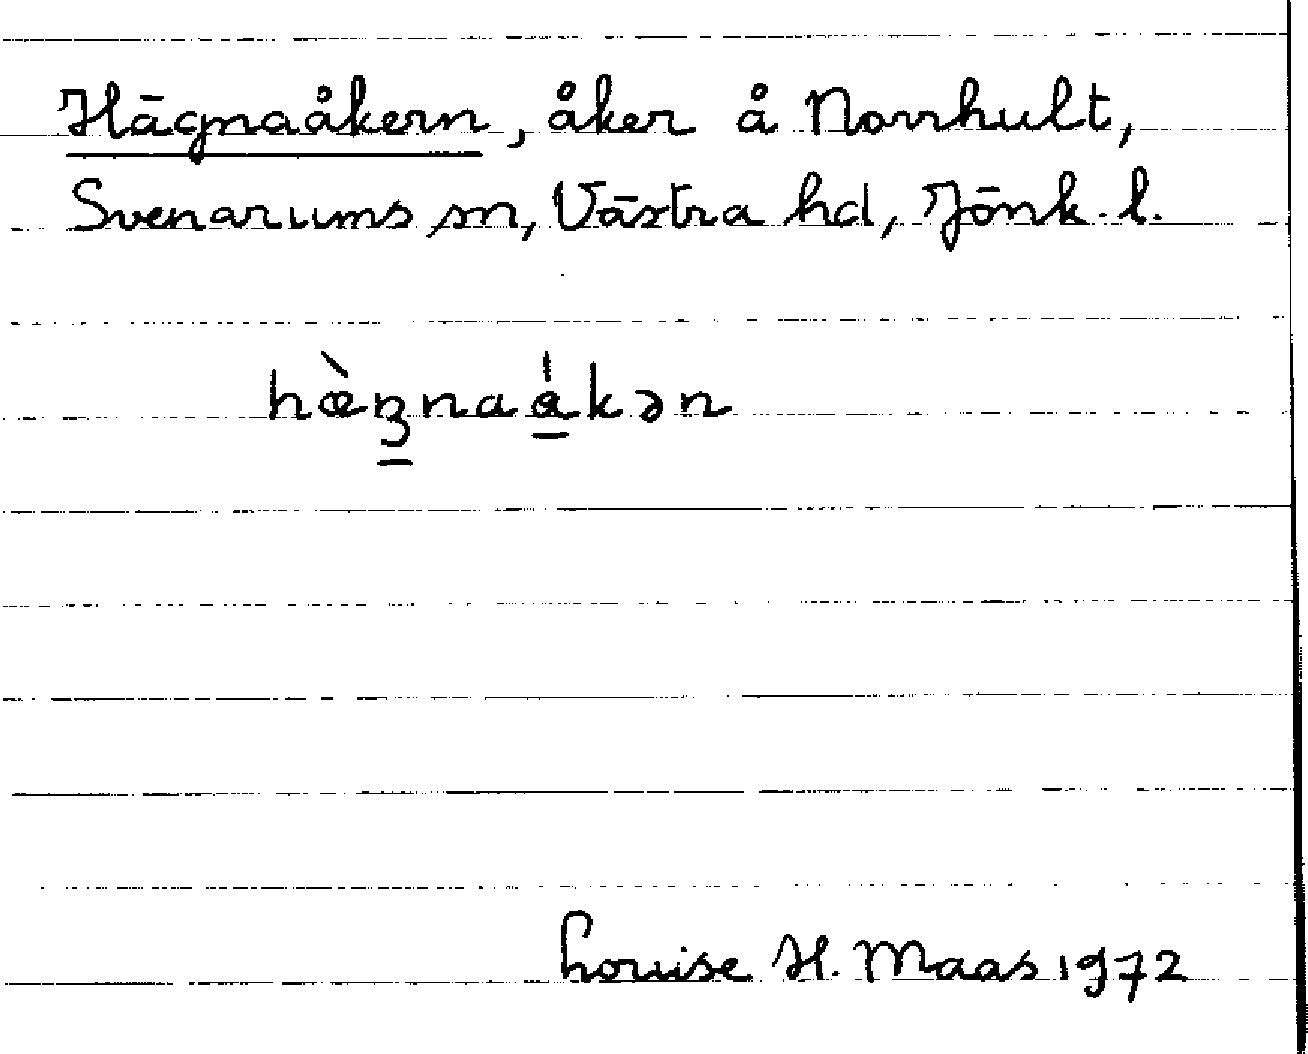 Hägnaåkern, åker å Norrhult,
Svenarums sn, Västra hd, Jönk. l.
hœ̀ʒ̱naǻ̱kən
Louise H. Maas 1972